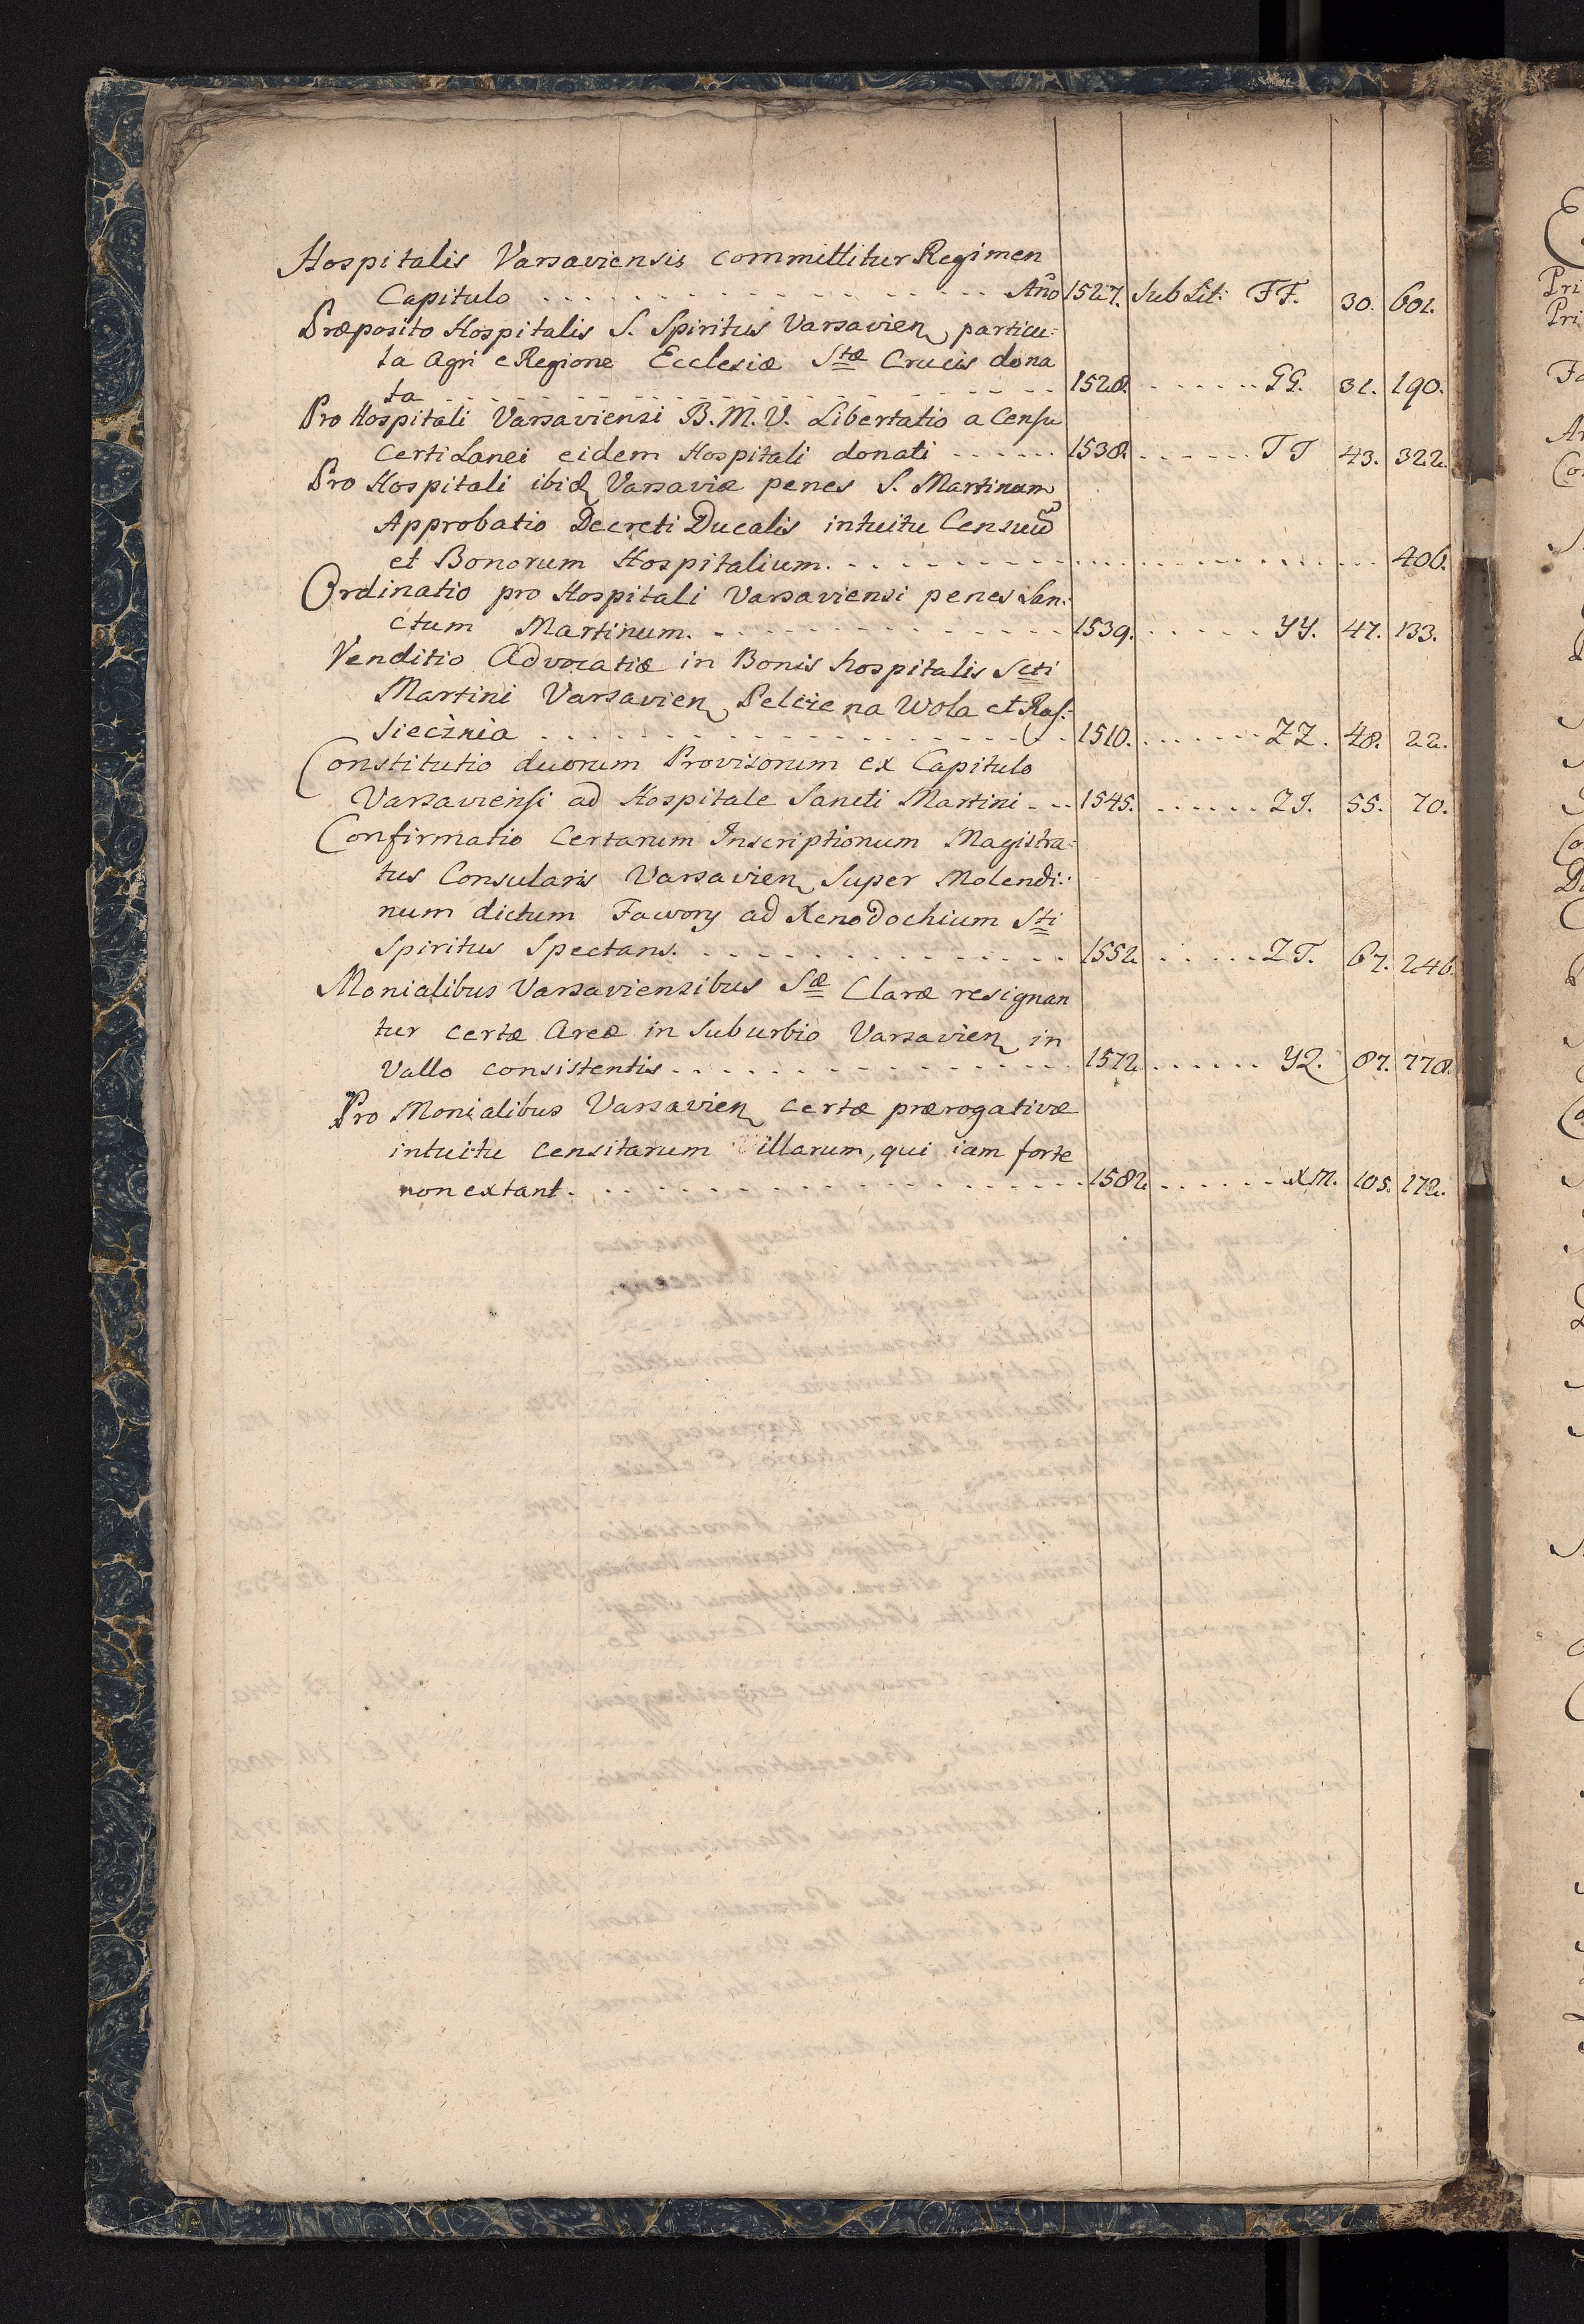 Hospitalis Varsaviensis committitur Regimen
Capitulo . . . . . . . . . . . . . . . . . . Año 1527. Sub Lit: FF. 30. 601.
Præposito Hospitalis S. Spiritus Varsavien particu:
la Agri e Regione Ecclesiæ Stæ Crucis dona
ta . . . . . . . . . . . . . . . . . . . . 1528. . . . . . . GG. 31. 190.
Pro Hospitali Varsaviensi B. M. V. Libertatio a Censu
Certi Lanei eidem Hospitali donati . . . . . . 1538. . . . . . . TT 43. 322.
Pro Hospitali ibid Varsaviæ penes S. Martinum
Approbatio Decreti Ducalis intuitu Censuũ
et Bonorum Hospitalium. . . . . . . . . . . . . . . . . . . . 406.
Ordinatio pro Hospitali Varsaviensi penes San:
ctum Martinum. . . . . . . . . . . . . . 1539. . . . . . . YY. 47. 133.
Venditio Advocatiæ in Bonis hospitalis Scti
Martini Varsavien Pelcze na Wola et Ras:
siecznia . . . . . . . . . . . . . . . . . 1510. . . . . . . ZZ. 48. 22.
Constitutio duorum Provisorum ex Capitulo
Varsaviensi ad Hospitale Sancti Martini . . . 1545. . . . . . . ZI. 55. 70.
Confirmatio Certarum Inscriptionum Magistra:
tus Consularis Varsavien Super Molendi:
num dictum Fawory ad Xenodochium Sti
Spiritus Spectans. . . . . . . . . . . . . 1552 . . . . . ZT. 67. 246.
Monialibus Varsaviensibus Sæ Claræ resignan
tur certæ Areæ in Suburbio Varsavien in
Vallo consistentis . . . . . . . . . . . . . 1572 . . . . . . YZ. 87. 778.
Pro Monialibus Varsavien certæ prærogativæ
intuitu censitarum Villarum, qui iam forte
non extant. . . . . . . . . . . . . . . . . 1582 . . . . . . XM. 105. 172.